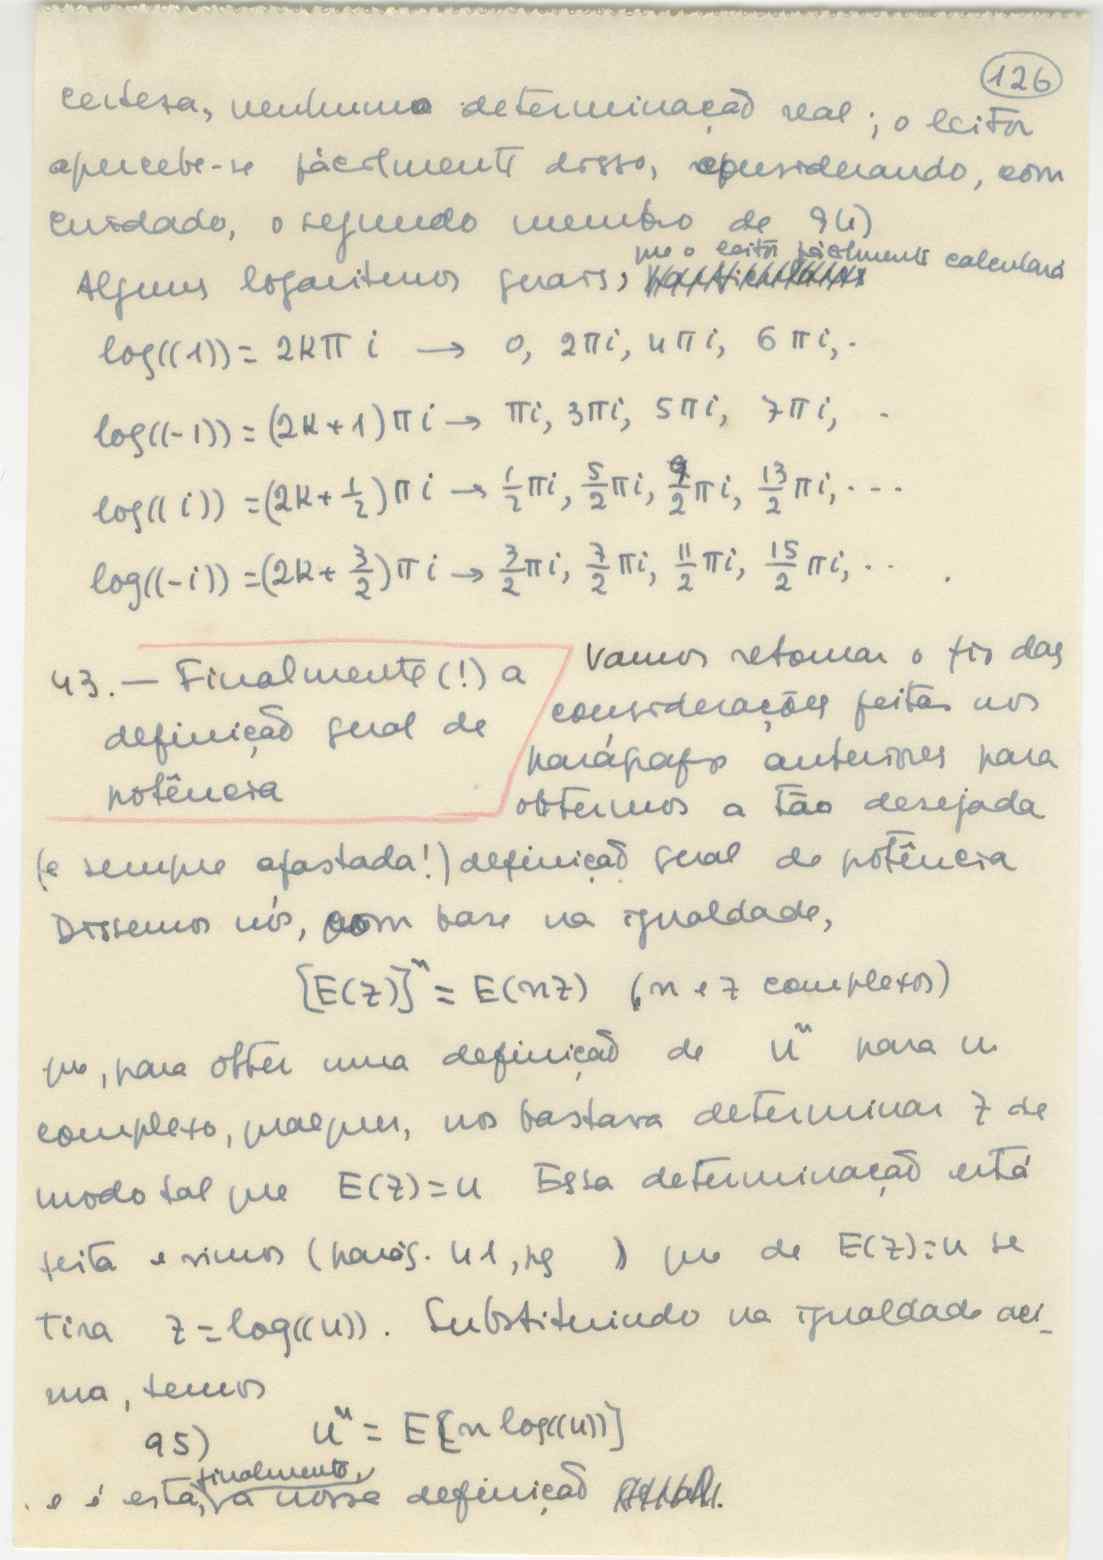 126
certesa, nenhuma determinação real; o leitor
apercebe-se fàcilmente disso, considerando, com
cuidado, o segundo membro de 94)
que o leitor fàcilmente calculará
Alguns logaritmos gerais,
log((1)) = 2kπi → 0, 2πi, 4πi, 6πi, .
log((-1)) = (2k+1)πi → πi, 3πi, 5πi, 7πi, .
log((i)) = (2k+1/2)πi → 1/2πi, 5/2πi, 9/2πi, 13/2πi, ...
log((-i)) = (2k+3/2)πi → 3/2πi, 7/2πi, 11/2πi, 15/2πi, .. .
43. — Finalmente (!) a
definição geral de
potência
Vamos retomar o fio das
considerações feitas nos
parágrafos anteriores para
obtermos a tão desejada
(e sempre afastada!) definição geral de potência
Dissemos nós, com base na igualdade,
[E(z)]ⁿ = E(nz) (n e z complexos)
que, para obter uma definição de uⁿ para n
complexo, qualquer, nos bastava determinar z de
modo tal que E(z)=u Essa determinação está
feita e vimos (parág. 41, pg ) que de E(z)=u se
tira z = log((u)). Substituindo na igualdade aci-
ma, temos
95) uⁿ = E[n log((u))]
finalmente,
e é esta, a nossa definição